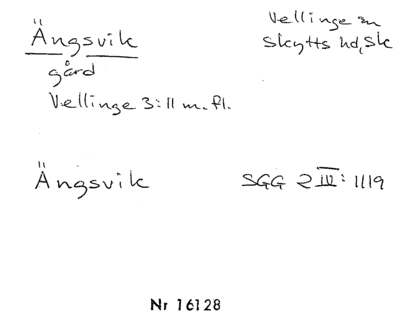 Ängsvik
Vellinge sn
Skytts hd, Sk
gård
Vellinge 3:11 m.fl.
Ängsvik
SGG 2 IV: 1119
Nr 16128